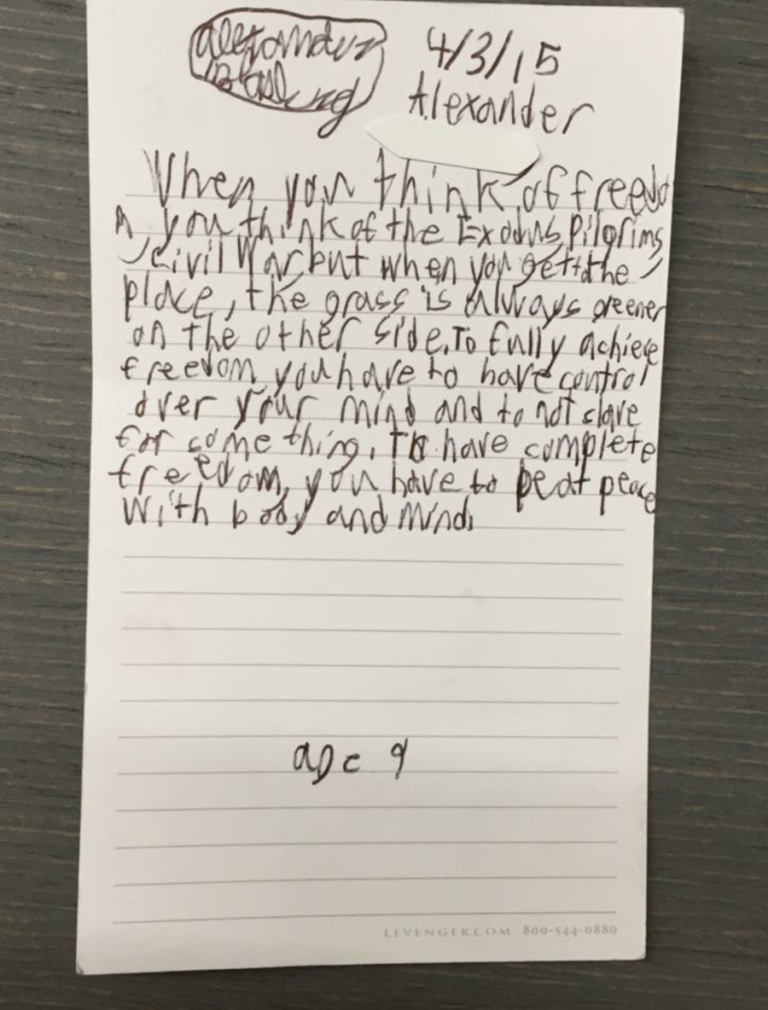 4/3/15
Alexander
When you think of freedo
m you think of the Exodus, Pilgrims
, Civil War but when you get to the
place, the grass is always greener
on the other side. To fully achieve
freedom you have to have control
over your mind and to not slave
for something. To have complete
freedom, you have to be at peace
with body and mind.
age 9
LEVENGER.COM 800-544-0880